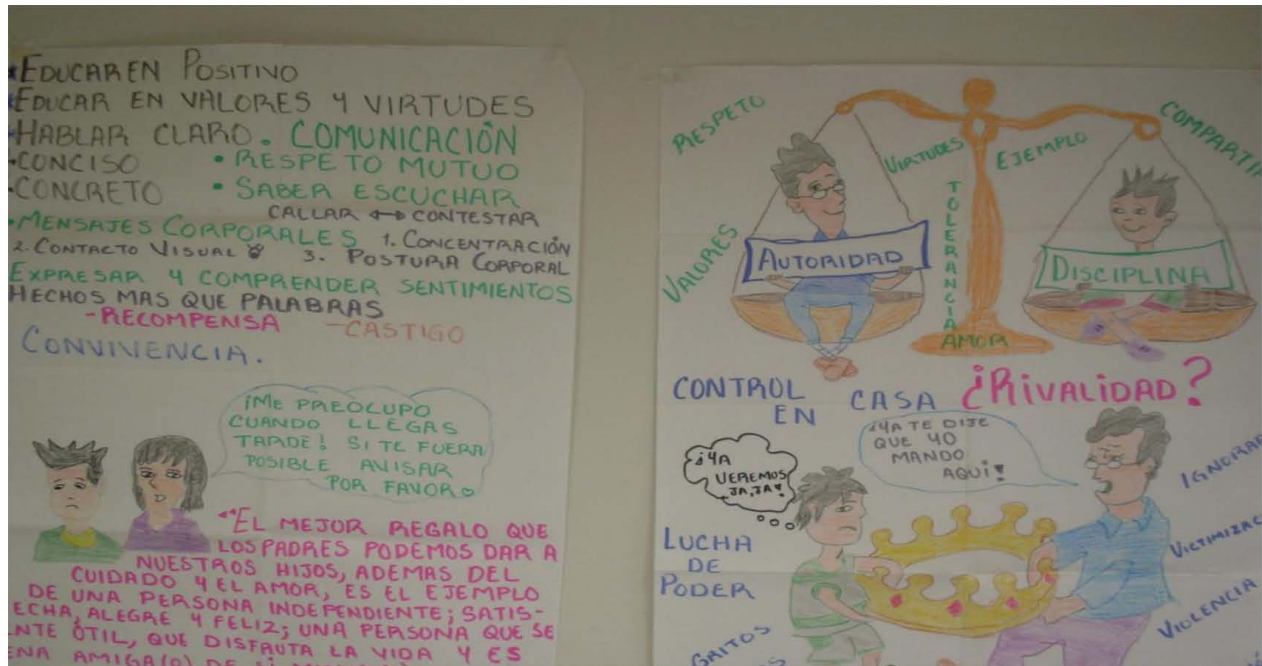 EDUCAR EN POSITIVO
EDUCAR EN VALORES Y VIRTUDES
HABLAR CLARO. COMUNICACIÓN
•CONCISO • RESPETO MUTUO
•CONCRETO • SABER ESCUCHAR
CALLAR ↔ CONTESTAR
•MENSAJES CORPORALES 1. CONCENTRACIÓN
2. CONTACTO VISUAL 3. POSTURA CORPORAL
EXPRESAR Y COMPRENDER SENTIMIENTOS
HECHOS MAS QUE PALABRAS
-RECOMPENSA -CASTIGO
CONVIVENCIA.
¡ME PREOCUPO
CUANDO LLEGAS
TARDE! SI TE FUERA
POSIBLE AVISAR
POR FAVOR
"EL MEJOR REGALO QUE
LOS PADRES PODEMOS DAR A
NUESTROS HIJOS, ADEMAS DEL
CUIDADO Y EL AMOR, ES EL EJEMPLO
DE UNA PERSONA INDEPENDIENTE; SATIS-
ECHA, ALEGRE Y FELIZ; UNA PERSONA QUE SE
NTE ÚTIL, QUE DISFRUTA LA VIDA Y ES
ENA AMIGA(O) DE
RESPETO
VIRTUDES
EJEMPLO
COMPARTIR
VALORES
TOLERANCIA
AUTORIDAD
DISCIPLINA
AMOR
CONTROL
EN CASA ¿RIVALIDAD?
¡YA
VEREMOS
JA, JA!
¡YA TE DIJE
QUE YO
MANDO
AQUÍ!
IGNORAR
LUCHA
DE
PODER
VICTIMIZAC
VIOLENCIA
GRITOS